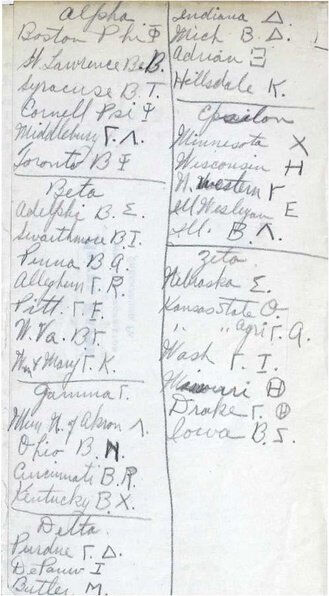 Alpha
Boston Phi Φ
St Lawrence Be B.
Syracuse B. T.
Cornell Psi Ψ
Middlebury Γ. Λ.
Toronto B Ψ
Beta
Adelphi B. Σ.
Swarthmore B. I.
Penna B A.
Allegheny Γ. R
Pitt. Γ. E.
W. Va. B Γ.
Wm & Mary Γ. K.
Gamma Γ.
Mun. N. of Akron Λ.
Ohio B. N.
Cincinnati B. R.
Kentucky B. X.
Delta
Purdue Γ. Δ.
DePauw I
Butler M.
Indiana Δ.
Mich B. Δ.
Adrian Ξ
Hillsdale K.
Epsilon
Minnesota X
Wisconsin H
N. Western Γ
Ill Wesleyan E
Ill. B. Λ.
Zeta
Nebraska Σ.
Kansas State O
" " Agri Γ. A.
Wash Γ. I.
Missouri Θ
Drake Γ. Θ
Iowa B. Σ.